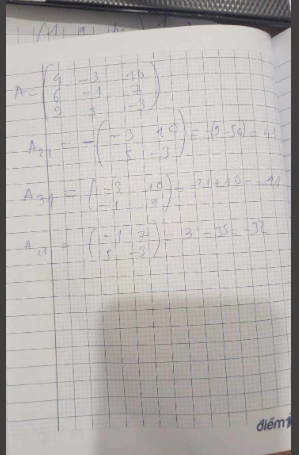 A = ( 4 -3 10
6 -1 7
2 5 -3 )
A21 = - ( -3 10
5 -3 ) = -(9-50) = 41
A31 = ( -3 10
-1 7 ) = -21+10 = -11
A11 = ( -1 7
5 -3 ) = 3 - 35 = -32
điểm